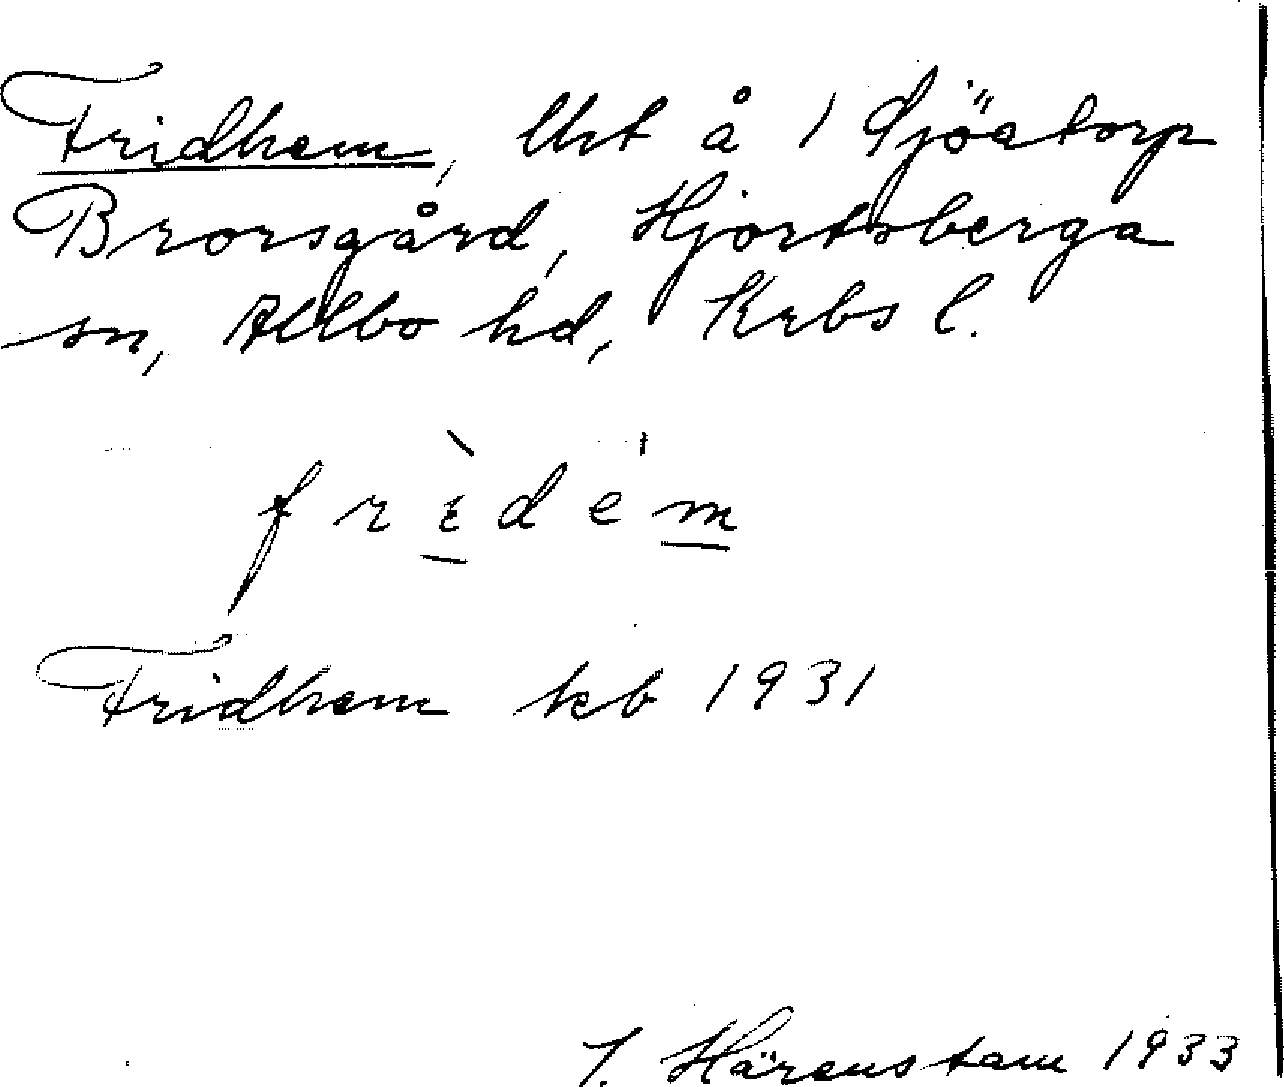 Fridhem, lht å 1 Sjöatorp
Brorsgård, Hjortsberga
sn, Allbo hd, Krbs l.
frɛ̀dém
Fridhem kb 1931
J. Härenstam 1933